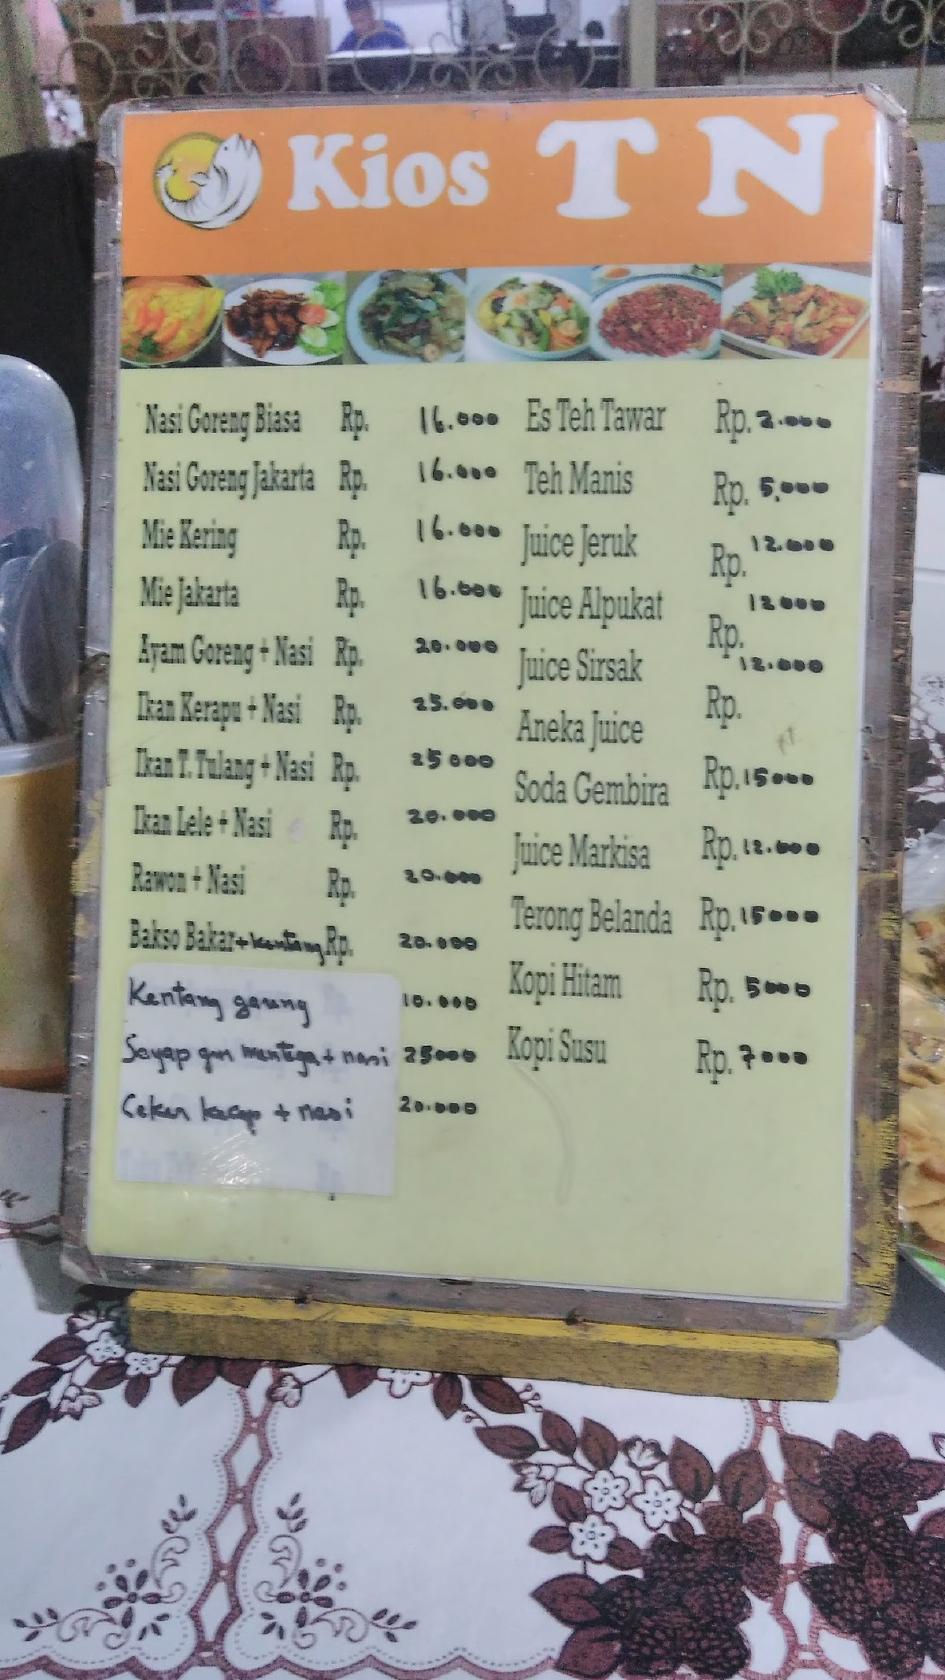 Kios T N
Nasi Goreng Biasa Rp. 16.000
Nasi Goreng Jakarta Rp. 16.000
Mie Kering Rp. 16.000
Mie Jakarta Rp. 16.000
Ayam Goreng + Nasi Rp. 20.000
Ikan Kerapu + Nasi Rp. 25.000
Ikan T. Tulang + Nasi Rp. 25000
Ikan Lele + Nasi Rp. 20.000
Rawon + Nasi Rp. 20.000
Bakso Bakar + kentang Rp. 20.000
Kentang goreng 10.000
Sayap grg mentega + nasi 25000
Ceker kecap + nasi 20.000
Es Teh Tawar Rp. 2.000
Teh Manis Rp. 5.000
Juice Jeruk Rp. 12.000
Juice Alpukat Rp. 12000
Juice Sirsak Rp. 12.000
Aneka Juice
Soda Gembira Rp. 15000
Juice Markisa Rp. 12.000
Terong Belanda Rp. 15000
Kopi Hitam Rp. 5000
Kopi Susu Rp. 7000